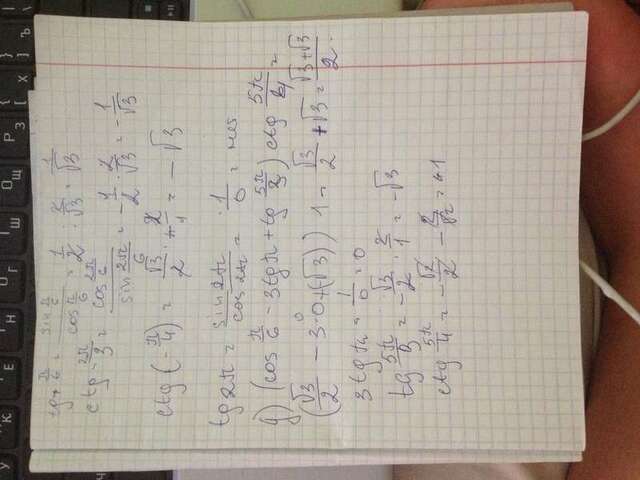 tg π/6 = sin π/6 / cos π/6 = 1/2 · 2/√3 = 1/√3
ctg - 2π/3 = cos 2π/6 / sin 2π/6 = - 1/2 · 2/√3 = - 1/√3
ctg (- π/4) = √3/2 · 2/1 = - √3
tg 2π = sin 2π / cos 2π = 1/0 = нет
д) (cos π/6 - 3tg π + tg 5π/3) ctg 5π/4 =
(√3/2 - 3·0 + (√3)) 1 = √3/2 + √3 = √3+√3 / 2
3 tg π = 1/0 = 0
tg 5π/3 = - √3/2 · 2/1 = - √3
ctg 5π/4 = - √2/2 - 2/√2 = +1
Щ
О
Г
Н
Е
К
У
Х
Ъ
З